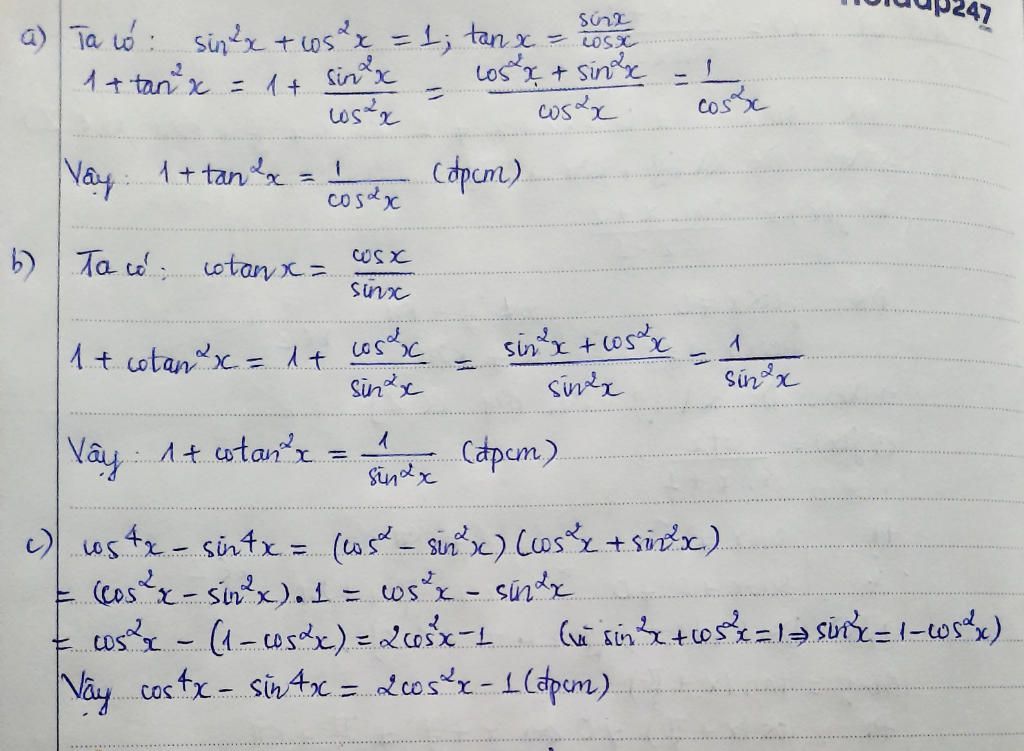 a) Ta có: sin²x + cos²x = 1; tan x = sinx/cosx
1 + tan²x = 1 + sin²x/cos²x = (cos²x + sin²x)/cos²x = 1/cos²x
Vậy: 1 + tan²x = 1/cos²x (đpcm)
b) Ta có: cotan x = cosx/sinx
1 + cotan²x = 1 + cos²x/sin²x = (sin²x + cos²x)/sin²x = 1/sin²x
Vậy: 1 + cotan²x = 1/sin²x (đpcm)
c) cos⁴x - sin⁴x = (cos² - sin²x)(cos²x + sin²x)
= (cos²x - sin²x).1 = cos²x - sin²x
= cos²x - (1 - cos²x) = 2cos²x - 1 (vì sin²x + cos²x = 1 ⇒ sin²x = 1 - cos²x)
Vậy cos⁴x - sin⁴x = 2cos²x - 1 (đpcm)